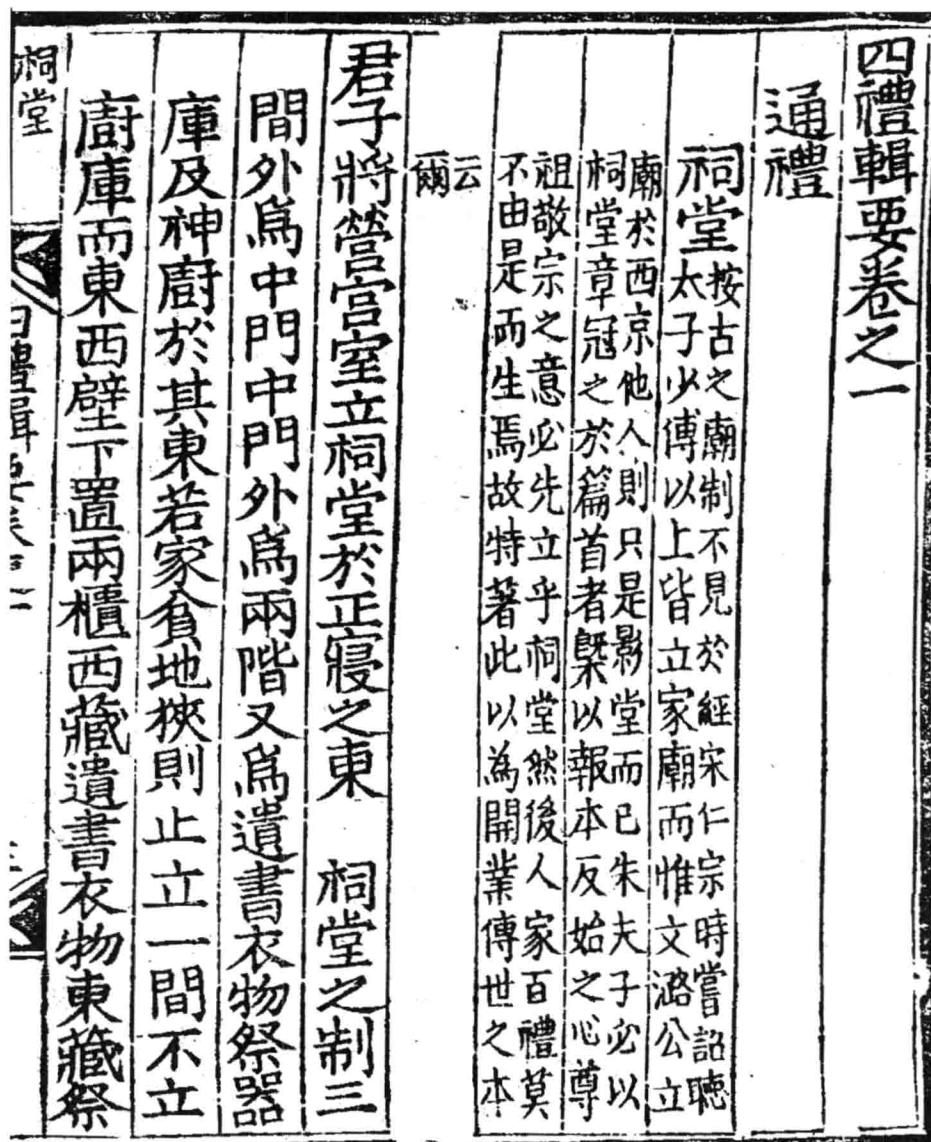 四禮輯要卷之一
通禮
祠堂
按古之廟制不見於經宋仁宗時嘗詔聽
太子少傅以上皆立家廟而惟文潞公立
廟於西京他人則只是影堂而已朱夫子必以
祠堂章冠之於篇首者槩以報本反始之心尊
祖敬宗之意必先立乎祠堂然後人家百禮莫
不由是而生焉故特著此以為開業傳世之本
云
爾
君子將營宮室立祠堂於正寢之東　祠堂之制三
間外爲中門中門外爲兩階又爲遺書衣物祭器
庫及神廚於其東若家貧地狹則止立一間不立
廚庫而東西壁下置兩櫃西藏遺書衣物東藏祭
祠堂